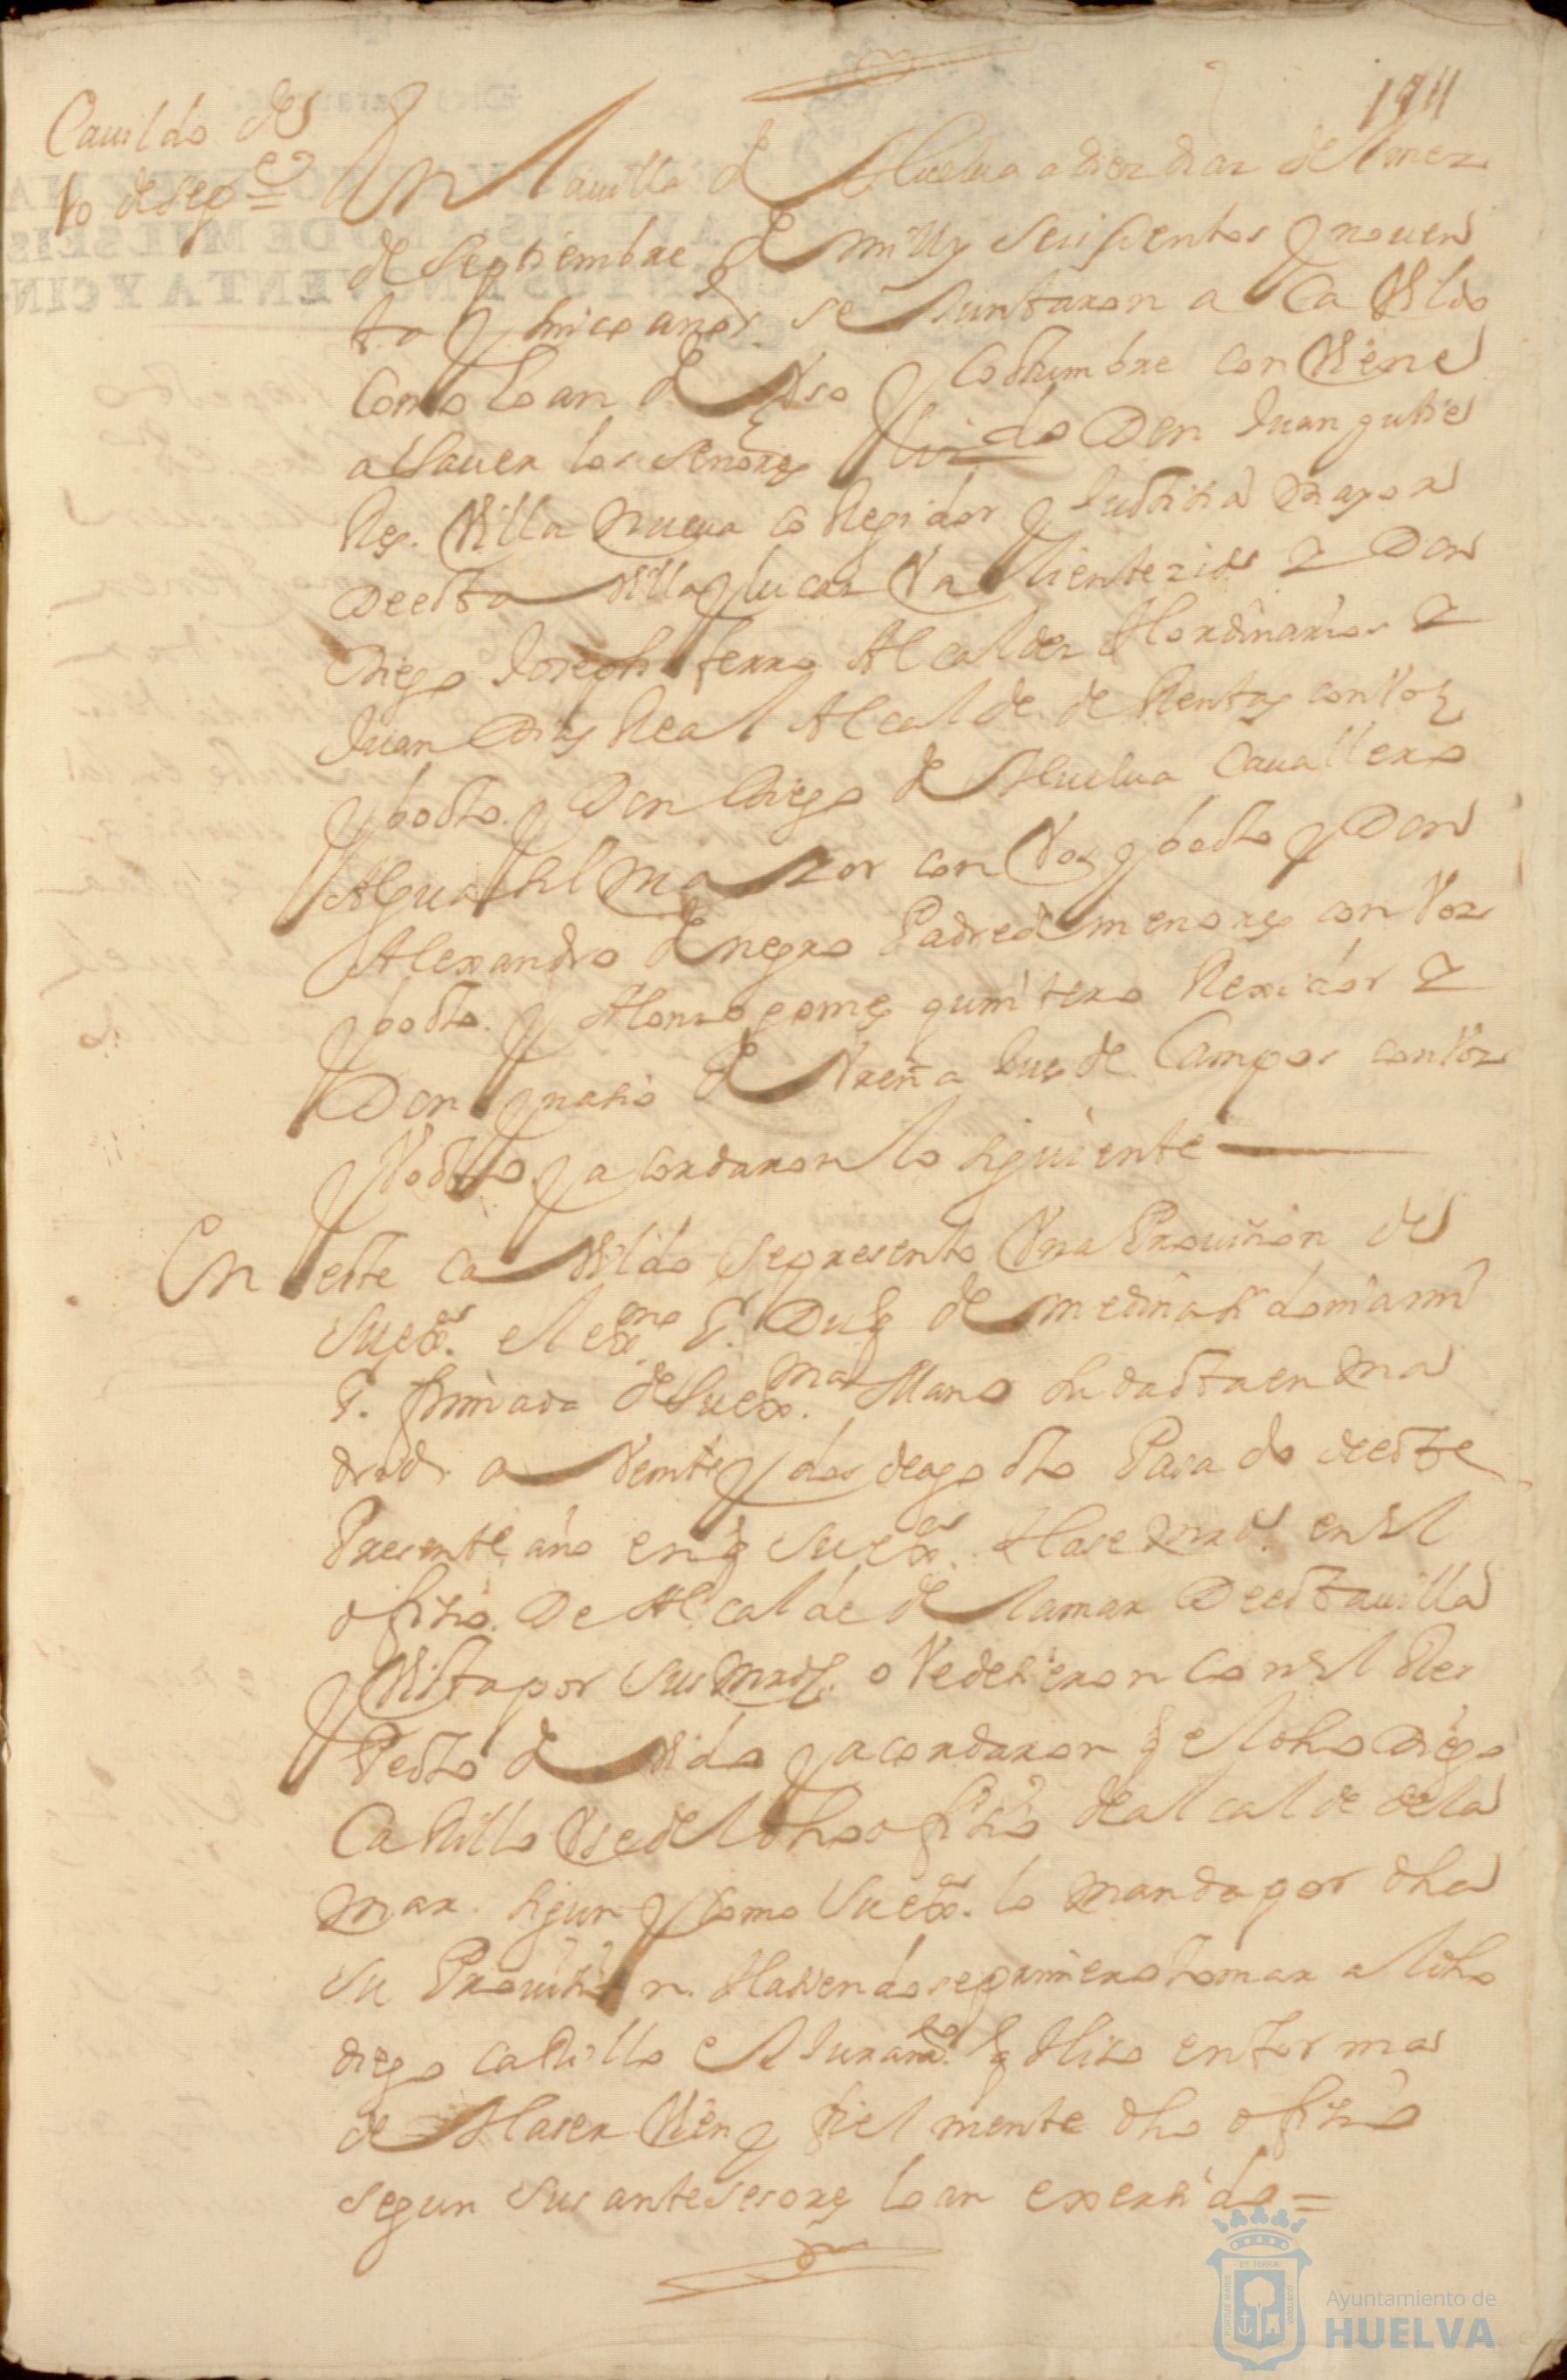 194
Cauildo de
10 de sepe
En la uilla de Huelua a diez dias del mez
de septiembre de mill y seiscientos y nouen
ta y sinco años se Juntaron a Ca Vildo
Como lo an de Vso y Costumbre conViene
a Sauer los señores Lizdo Don Juan gutie
Res. Villa nueva coRegidor y Justizia mayor
de esta Villa y lucas Va lienteziko y Don
Diego Joseph ferro Alcaldes Hordinarios y
Juan Dias Real Alcalde de Rentas con Voz
y botto. y Don Diego de Huelua Cauallero
Alguasil Maior con Voz y botto y Don
Alexandro de negro Padre de menores con Voz
y botto. y Alonso gomes quintero Rexidor y
Don Ygnasio de Vreña Jues de Campos con Voz
y Votto. y acordaron lo siguiente
En este ca Vildo se presento Vna Prouision de
su exa. el exmo Sr. Duq de medinasidonia mi
Sr. firmada de su exma Mano su dacta en Ma
drid. a Veinte y dos de agosto Pasado de este
Presente año en q su exa. Hase mrd. en el
ofizio. De Alcalde de la mar De esta uilla
y Vista por sus mrds. oVedesieron con el Res
Pecto de Vido y acordaron q el dho Diego
Castillo Vse del dho ofisio de alcalde de la
mar. sigun y como Su exa. lo manda por dha
su Prouision. Hasiendose primero tomar al dho
diego castillo el Juramto. q Hizo en forma
de Haser Vien y fiel mente dho ofizio
segun sus antesesores lo an exersido =
Ayuntamiento de
HUELVA